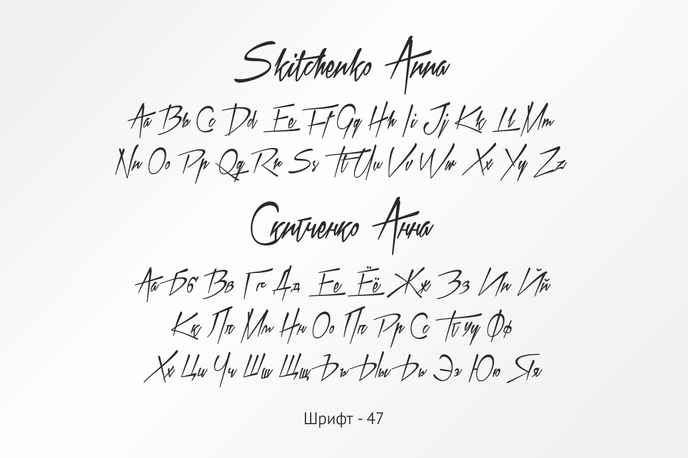 Skitchenko Anna
Aa Bb Cc Dd Ee Ff Gg Hh Ii Jj Kk Ll Mm
Nn Oo Pp Qq Rr Ss Tt Uu Vv Ww Xx Yy Zz
Скитченко Анна
Аа Бб Вв Гг Дд Ее Ёё Жж Зз Ии Йй
Кк Лл Мм Нн Оо Пп Рр Сс Тт Уу Фф
Хх Цц Чч Шш Щщ Ъъ Ыы Ьь Ээ Юю Яя
Шрифт - 47